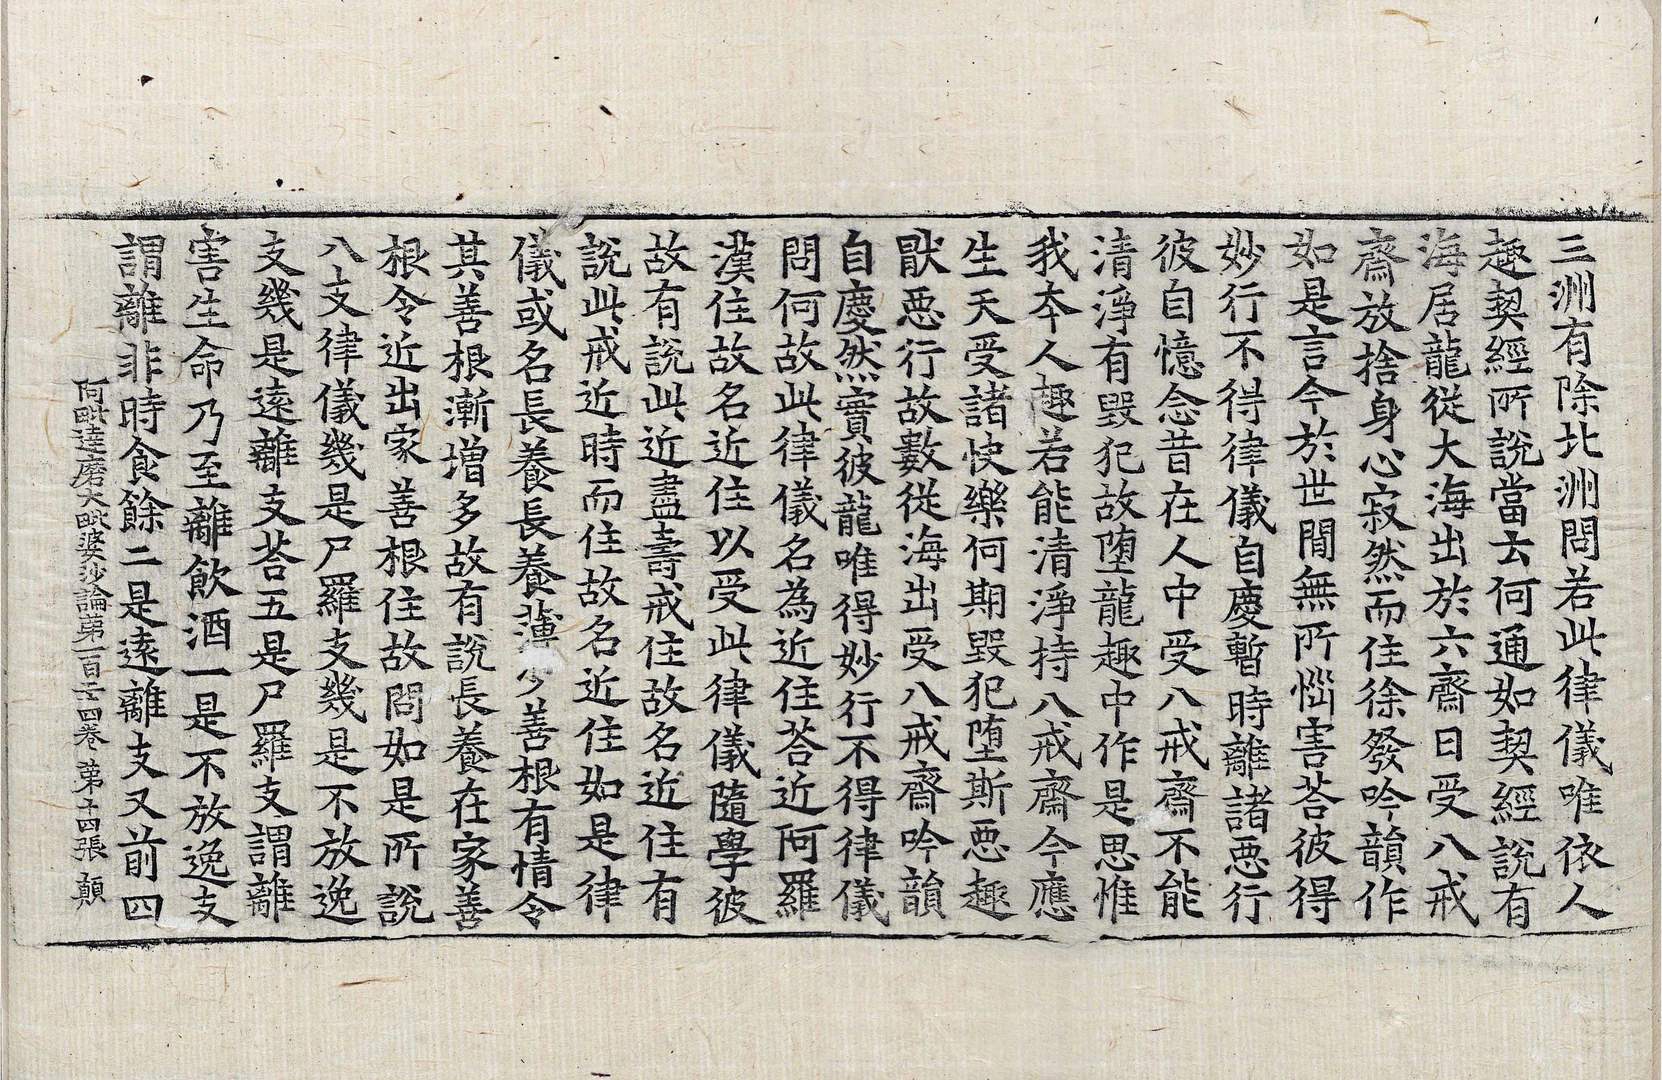 三洲有除北洲問若此律儀唯依人
趣契經所說當云何通如契經說有
海居龍從大海出於六齋日受八戒
齋放捨身心寂然而住徐發吟韻作
如是言今於世間無所惱害荅彼得
妙行不得律儀自慶暫時離諸惡行
彼自憶念昔在人中受八戒齋不能
清淨有毀犯故墮龍趣中作是思惟
我本人趣若能清淨持八戒齋今應
生天受諸快樂何期毀犯墮斯惡趣
猒惡行故數從海出受八戒齋吟韻
自慶然實彼龍唯得妙行不得律儀
問何故此律儀名為近住荅近阿羅
漢住故名近住以受此律儀隨學彼
故有說此近盡壽戒住故名近住有
說此戒近時而住故名近住如是律
儀或名長養長養薄少善根有情令
其善根漸增多故有說長養在家善
根令近出家善根住故問如是所說
八支律儀幾是尸羅支幾是不放逸
支幾是遠離支荅五是尸羅支謂離
害生命乃至離飲酒一是不放逸支
謂離非時食餘二是遠離支又前四
阿毗達磨大毗婆沙論第一百二十四卷 第十四張 顛